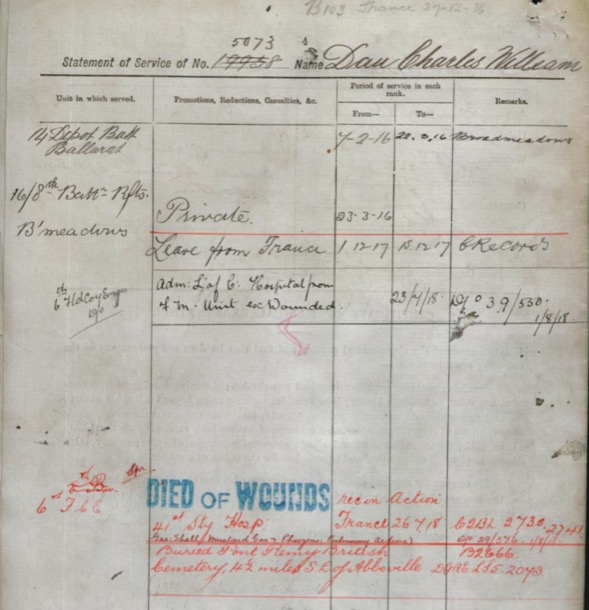 B103 France 27-12-16
5073
Statement of Service of No. 19938 Name Dau Charles William
Unit in which served.
Promotions, Reductions, Casualties, &c.
Period of service in each rank.
From—
To—
Remarks.
14 Depot Batt 7-2-16 22.3.16 Broadmeadows
Ballarat
16/8th Battn Rfts.
Private. 23-3-16
B'meadows
Leave from France 1.12.17 15.12.17 C Records
6th Fld Coy Engrs
Adm: L of C. Hospital from
Fm. Unit ex Wounded. 23/7/18. 39/530.
1/8/18.
DIED OF WOUNDS rec in Action
6th F C E
41st Sty Hosp France 26 7 18 C2BL 2730, 2741
Gas Shell, Mustard Gas 39/576 1/8/18
Buried Pont Remy British B2666
Cemetery, 4½ miles S.E of Abbeville